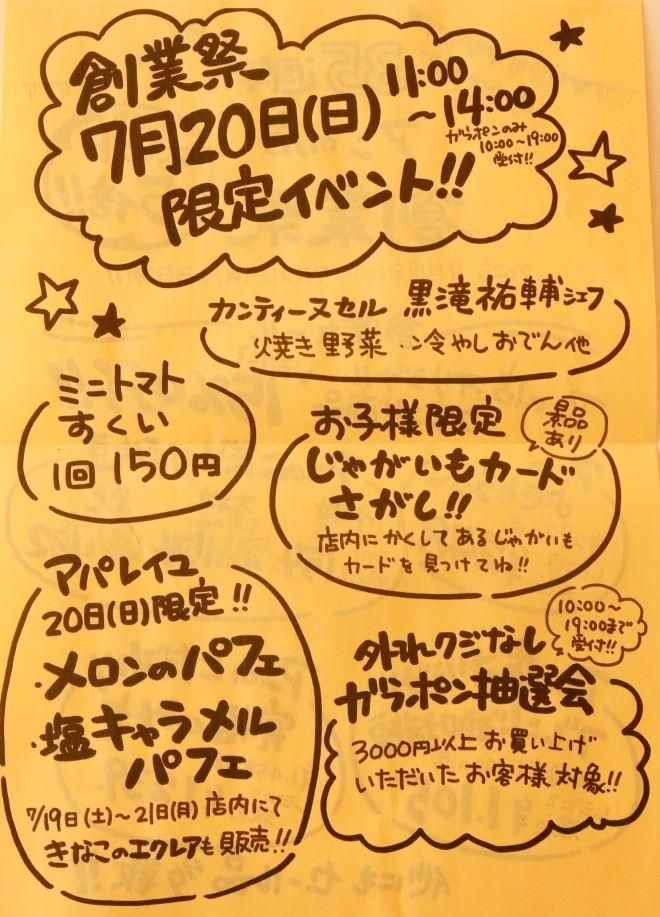 創業祭
7月20日(日) 11:00
～14:00
ガラポンのみ
10:00～19:00
受付!!
限定イベント!!
カンティーヌセル 黒滝祐輔シェフ
焼き野菜・冷やしおでん他
ミニトマト
すくい
1回 150円
お子様限定
景品
あり
じゃがいもカード
さがし!!
店内にかくしてあるじゃがいも
カードを見つけてね!!
アパレイユ
20日(日)限定!!
・メロンのパフェ
・塩キャラメル
パフェ
7/19日(土)～21日(月) 店内にて
きなこのエクレアも販売!!
10:00～
19:00まで
受付!!
外れクジなし
ガラポン抽選会
3000円以上お買い上げ
いただいたお客様対象!!
他にもセール品多数!!